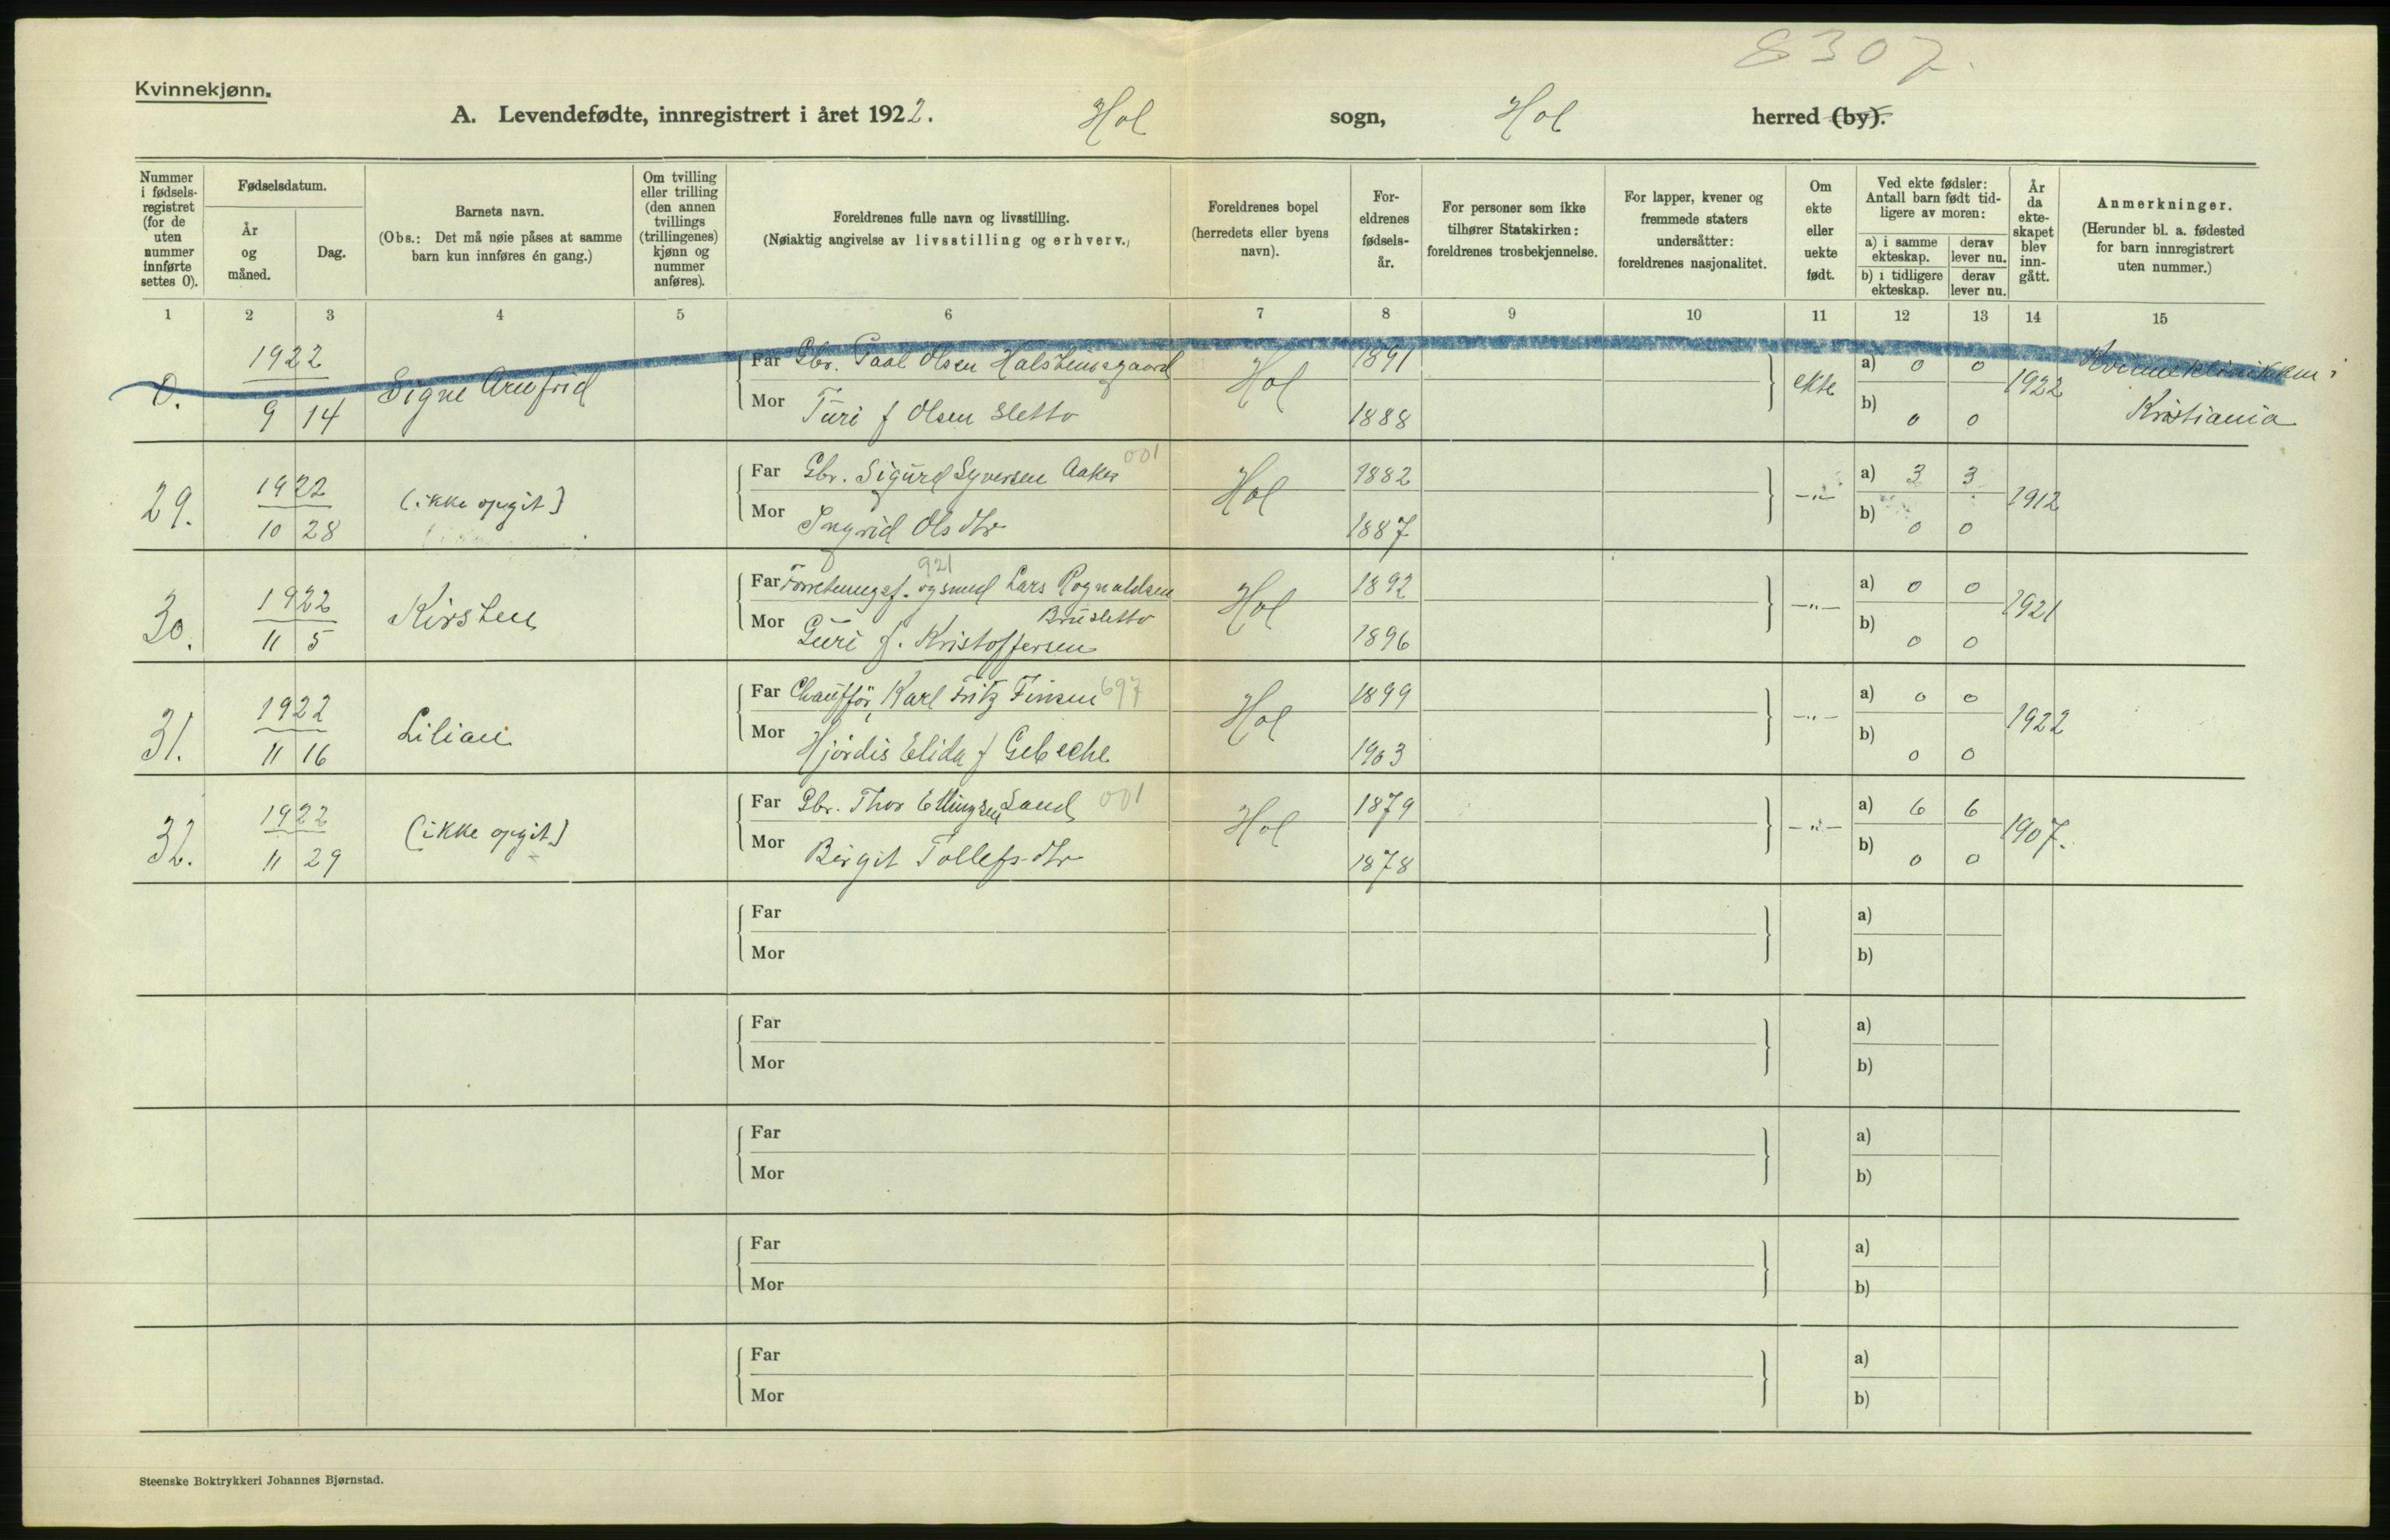 8307.
Kvinnekjønn.
A. Levendefødte, innregistrert i året 1922. Hol sogn, Hol herred (by).
Nummer i fødsels-registret (for de uten nummer innførte settes 0).
Fødselsdatum.
År og måned.
Dag.
Barnets navn.
(Obs.: Det må nøie påses at samme barn kun innføres én gang.)
Om tvilling eller trilling (den annen tvillings (trillingenes) kjønn og nummer anføres).
Foreldrenes fulle navn og livsstilling.
(Nøiaktig angivelse av livsstilling og erhverv.)
Foreldrenes bopel (herredets eller byens navn).
For-eldrenes fødsels-år.
For personer som ikke tilhører Statskirken: foreldrenes trosbekjennelse.
For lapper, kvener og fremmede staters undersåtter: foreldrenes nasjonalitet.
Om ekte eller uekte født.
Ved ekte fødsler: Antall barn født tid-ligere av moren:
a) i samme ekteskap.
derav lever nu.
b) i tidligere ekteskap.
derav lever nu.
År da ekte-skapet blev inn-gått.
Anmerkninger.
(Herunder bl. a. fødested for barn innregistrert uten nummer.)
1 2 3 4 5 6 7 8 9 10 11 12 13 14 15
0. 1922 9 14 Signe Arnfrid
Far Gbr. Paal Olsen Halstensgaard Hol 1891 ekte a) 0 0 1922 Kvinneklinikken i
Mor Turi f Olsen Sletto 1888 b) 0 0 Kristiania
29. 1922 10 28 (ikke opgit)
Far Gbr. Sigurd Syversen Aaker 001 Hol 1882 -"- a) 3 3 1912
Mor Ingrid Olsdtr 1887 b) 0 0
30. 1922 11 5 Kirsten
921
Far Forretningsf. og smed Lars Rognaldsen Brusletto Hol 1892 -"- a) 0 0 1921
Mor Guri f. Kristoffersen 1896 b) 0 0
31. 1922 11 16 Lilian
Far Chauffør Karl Fritz Finsen 697 Hol 1899 -"- a) 0 0 1922
Mor Hjørdis Elida f 1903 b) 0 0
32. 1922 11 29 (ikke opgit)
Far Gbr. Thor Ellingsen Sand 001 Hol 1879 -"- a) 6 6 1907.
Mor Birgit Tollefsdtr 1878 b) 0 0
Far a)
Mor b)
Far a)
Mor b)
Far a)
Mor b)
Far a)
Mor b)
Far a)
Mor b)
Steenske Boktrykkeri Johannes Bjørnstad.